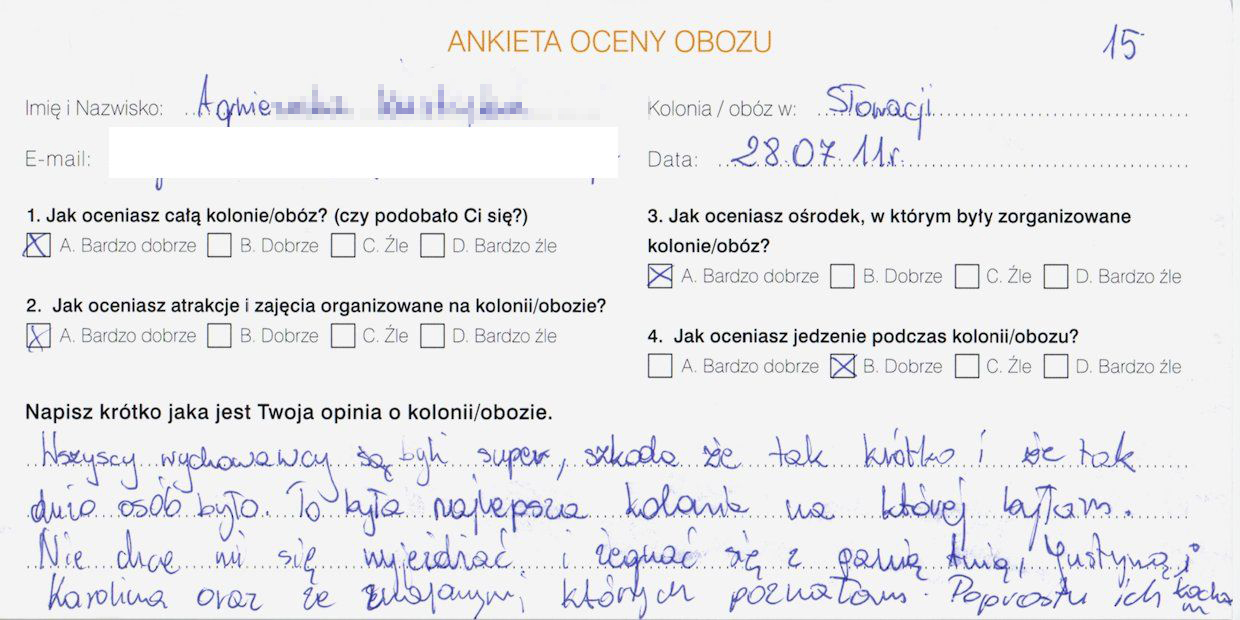 ANKIETA OCENY OBOZU
15
Imię i Nazwisko: Agnie
E-mail:
Kolonia / obóz w: Słowacji
Data: 28.07.11r.
1. Jak oceniasz całą kolonie/obóz? (czy podobało Ci się?)
A. Bardzo dobrze B. Dobrze C. Źle D. Bardzo źle
2. Jak oceniasz atrakcje i zajęcia organizowane na kolonii/obozie?
A. Bardzo dobrze B. Dobrze C. Źle D. Bardzo źle
3. Jak oceniasz ośrodek, w którym były zorganizowane
kolonie/obóz?
A. Bardzo dobrze B. Dobrze C. Źle D. Bardzo źle
4. Jak oceniasz jedzenie podczas kolonii/obozu?
A. Bardzo dobrze B. Dobrze C. Źle D. Bardzo źle
Napisz krótko jaka jest Twoja opinia o kolonii/obozie.
Wszyscy wychowawcy są byli super, szkoda że tak krótko i że tak
dużo osób było. To była najlepsza kolonia na której byłam.
Nie chcę mi się wyjeżdżać i żegnać się z panią Anią, Justyną i
Karoliną oraz ze znajomymi których poznałam. Poprostu ich kocha
m